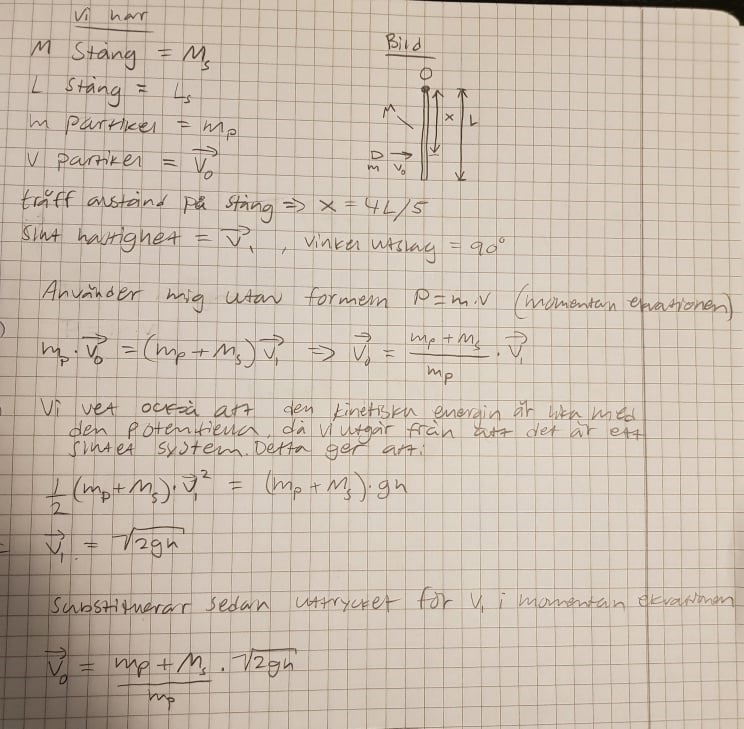 Vi har
M Stång = Ms
L Stång = Ls
m partikel = mp
v partikel = V⃗0
träff avstånd på stång ⇒ x = 4L/5
Slut hastighet = V⃗1, vinkel utslag = 90°
Bild
O
M
x
L
m
V0
Använder mig utav formeln P = m·v (momentan ekvationen)
mp · V⃗0 = (mp + Ms) V⃗1 ⇒ V⃗0 = (mp + Ms)/mp · V⃗1
Vi vet också att den kinetiska energin är lika med
den potentiella, då vi utgår från att det är ett
slutet system. Detta ger att:
1/2 (mp + Ms) · V⃗1² = (mp + Ms) · gh
V⃗1 = √2gh
Substituerar sedan uttrycket för V1 i momentan ekvationen
V⃗0 = (mp + Ms)/mp · √2gh